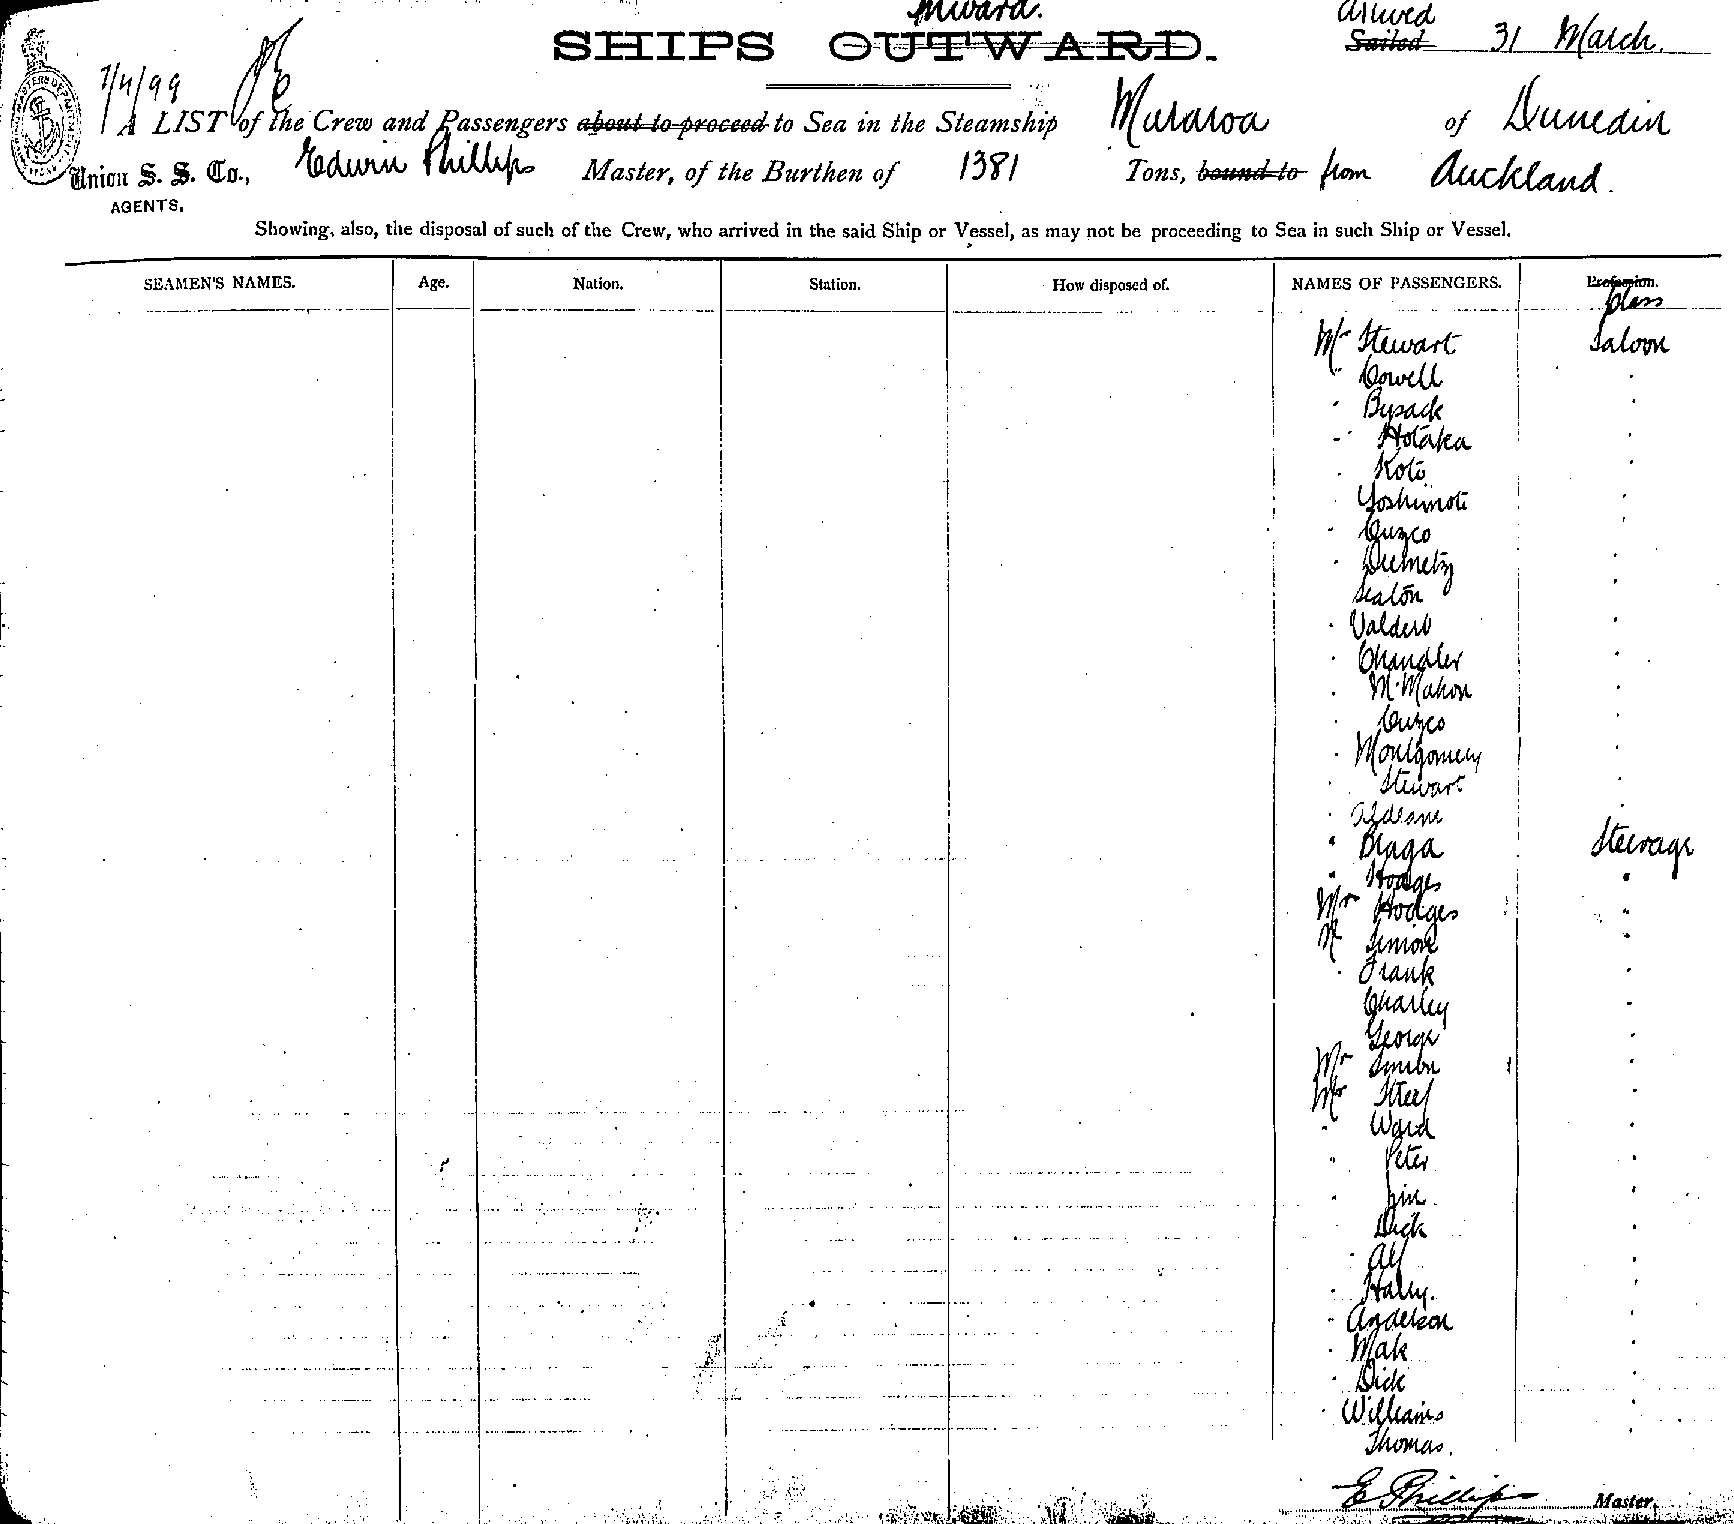 Inward.
SHIPS OUTWARD.
Arrived
Sailed 31 March.
7/4/99
A LIST of the Crew and Passengers about to proceed to Sea in the Steamship Mararoa of Dunedin
Union S. S. Co., Edwin Phillips Master, of the Burthen of 1381 Tons, bound to from Auckland.
AGENTS.
Showing, also, the disposal of such of the Crew, who arrived in the said Ship or Vessel, as may not be proceeding to Sea in such Ship or Vessel.
SEAMEN'S NAMES. Age. Nation. Station. How disposed of. NAMES OF PASSENGERS. Profession.
Class
Mr Stewart Saloon
" Cowell "
" Bysack "
" Hotaka "
" Koto "
" Yoshimoto "
" Cuzco "
" Dumetz "
Seaton "
" Valder "
" Chandler "
" McMahon "
" Cuzco "
" Montgomery "
" Stewart "
"
" Braga Steerage
" Hodges "
Mrs Hodges "
Mr Simion "
" Frank "
Charley "
George "
Mrs Simion "
Mr Steel "
" Ward "
" Peter "
" Jim "
Dick "
" Alf "
" Harry. "
" Anderson "
" Mak "
" Dick "
" Williams "
Thomas. "
E Phillips Master.